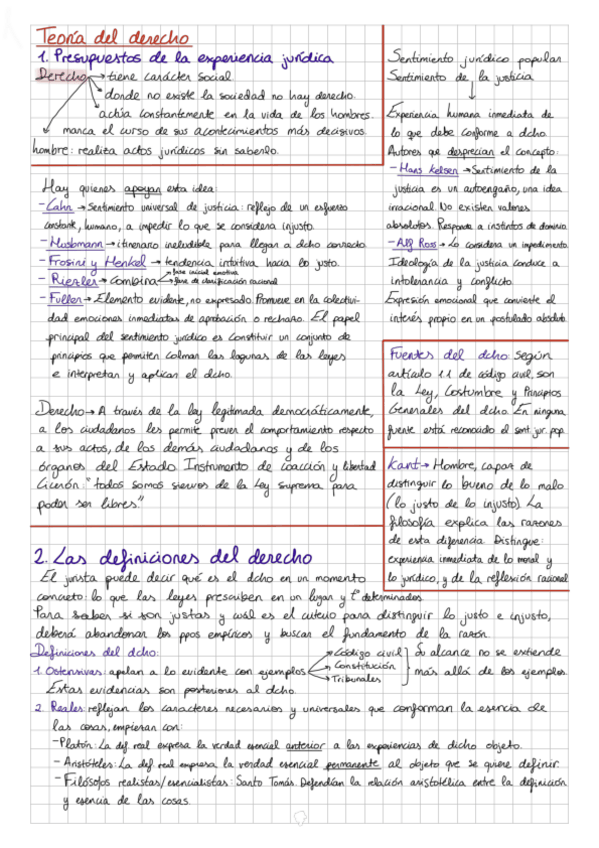 Teoría del derecho
1. Presupuestos de la experiencia jurídica
Derecho → tiene carácter social
donde no existe la sociedad no hay derecho.
actúa constantemente en la vida de los hombres.
marca el curso de sus acontecimientos más decisivos.
hombre: realiza actos jurídicos sin saberlo.
Hay quienes apoyan esta idea:
- Cahn → Sentimiento universal de justicia: reflejo de un esfuerzo
constante, humano, a impedir lo que se considera injusto.
- Husbmann → itinerario ineludible para llegar a dcho correcto.
- Frosini y Henkel → tendencia intuitiva hacia lo justo.
- Riezler → Combina → fase inicial emotiva
→ fase de clarificación racional
- Fuller → Elemento evidente, no expresado. Promueve en la colectivi-
dad emociones inmediatas de aprobación o rechazo. El papel
principal del sentimiento jurídico es constituir un conjunto de
principios que permiten colmar las lagunas de las leyes
e interpretan y aplican el dcho.
Derecho → A través de la ley legitimada democráticamente,
a los ciudadanos les permite prever el comportamiento respecto
a sus actos, de los demás ciudadanos y de los
órganos del Estado. Instrumento de coacción y libertad
Cicerón: "todos somos siervos de la Ley suprema para
poder ser libres"
Sentimiento jurídico popular
Sentimiento de la justicia
Experiencia humana inmediata de
lo que debe conforme a dcho.
Autores que desprecian el concepto:
- Hans Kelsen → Sentimiento de la
justicia es un autoengaño, una idea
irracional. No existen valores
absolutos. Responde a instintos de dominio
- Alf Ross → Lo considera un impedimento.
Ideología de la justicia conduce a
intolerancia y conflicto.
Expresión emocional que convierte el
interés propio en un postulado absoluto.
Fuentes del dcho: según
artículo 1.1 de código civil, son
la Ley, Costumbre y Principios
Generales del dcho. En ninguna
fuente está reconocido el sent. jur. pop.
Kant → Hombre, capaz de
distinguir lo bueno de lo malo
(lo justo de lo injusto). La
filosofía explica las razones
de esta diferencia. Distingue:
experiencia inmediata de lo moral y
lo jurídico, y de la reflexión racional
2. Las definiciones del derecho
El jurista puede decir qué es el dcho en un momento
concreto: lo que las leyes prescriben en un lugar y tº determinados.
Para saber si son justas y cuál es el criterio para distinguir lo justo e injusto,
deberá abandonar los ppos empíricos y buscar el fundamento de la razón.
Definiciones del dcho:
1. Ostensivas: apelan a lo evidente con ejemplos → Código civil
→ Constitución
→ Tribunales
Su alcance no se extiende
más allá de los ejemplos.
Estas evidencias son posteriores al dcho.
2. Reales: reflejan los caracteres necesarios y universales que conforman la esencia de
las cosas, empiezan con:
- Platón: La def. real expresa la verdad esencial anterior a las experiencias de dicho objeto.
- Aristóteles: La def real expresa la verdad esencial permanente al objeto que se quiere definir.
- Filósofos realistas/esencialistas: Santo Tomás. Defendían la relación aristotélica entre la definición
y esencia de las cosas.